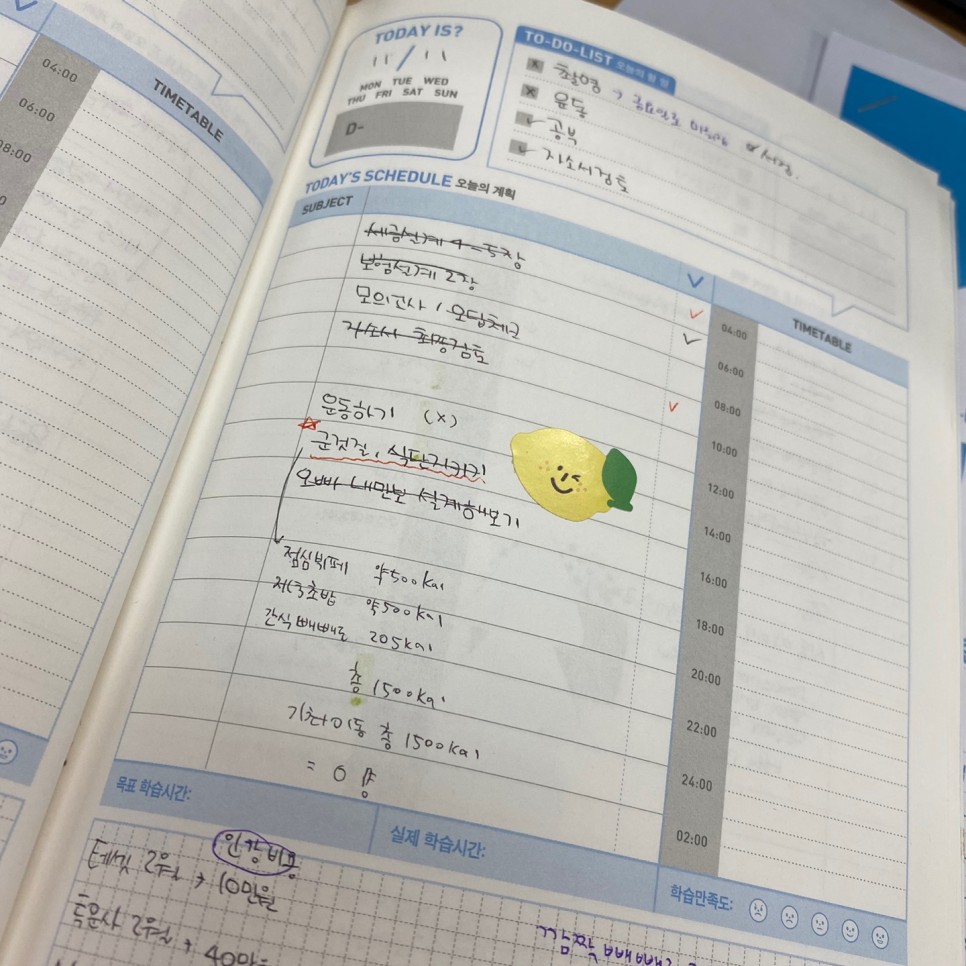 04:00
06:00
08:00
TIMETABLE
TODAY IS?
11/11
MON TUE WED
THU FRI SAT SUN
D-
TO-DO-LIST 오늘의 할 일
촬영 → 금요일로 미뤄짐
운동
공부
자소서검토
TODAY'S SCHEDULE 오늘의 계획
SUBJECT
세금설계 4-5장
보험설계 2장
모의고사 1 오답체크
자소서 최종검토
운동하기 (x)
군것질, 식단지키기!
오빠 내만보 설계해보기
점심뷔페 약500kal
저녁초밥 약500kal
간식빼빼로 205kal
총 1500kal
기차이동 총 1500kal
= 0
TIMETABLE
04:00
06:00
08:00
10:00
12:00
14:00
16:00
18:00
20:00
22:00
24:00
02:00
목표 학습시간:
실제 학습시간:
학습만족도:
인강비용
테셋 2월 → 10만원
2월 → 40만
깜짝 빼빼